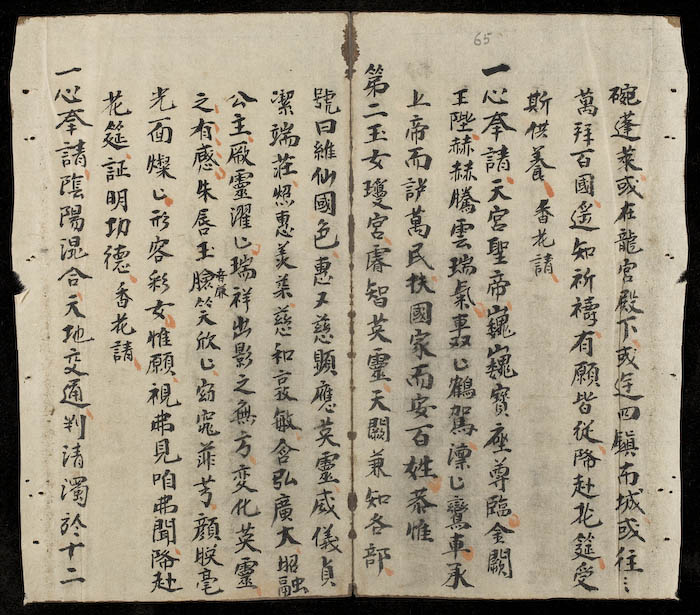 65
碗蓬萊或在龍宮殿下或㝎四鎮南城或往⺀
萬拜百國遥知祈禱有願皆從降赴花筵受
斯供養 香花請
一心奉請天宮聖帝巍巍寶座尊臨金闕
玉陛赫赫騰雲瑞氣車双〻鶴駕凛〻鸞車承
上帝而 萬民扶國家而安百姓恭惟
第二玉女瓊宮睿智英靈天闕兼知各部
號曰維仙國色惠又慈顯應英靈威儀貞
潔端莊照惠美柔慈和哀敏含弘廣大昭融
公主厥靈濯〻瑞祥出影之無方変化英靈
之有感朱唇玉臉 笑欣〻窈窕 芳顏 毫
光面燦〻形容彩女惟願視弗見咱弗聞降赴
花筵証明功德 香花請
一心奉請陰陽混合天地交通判清濁於十二